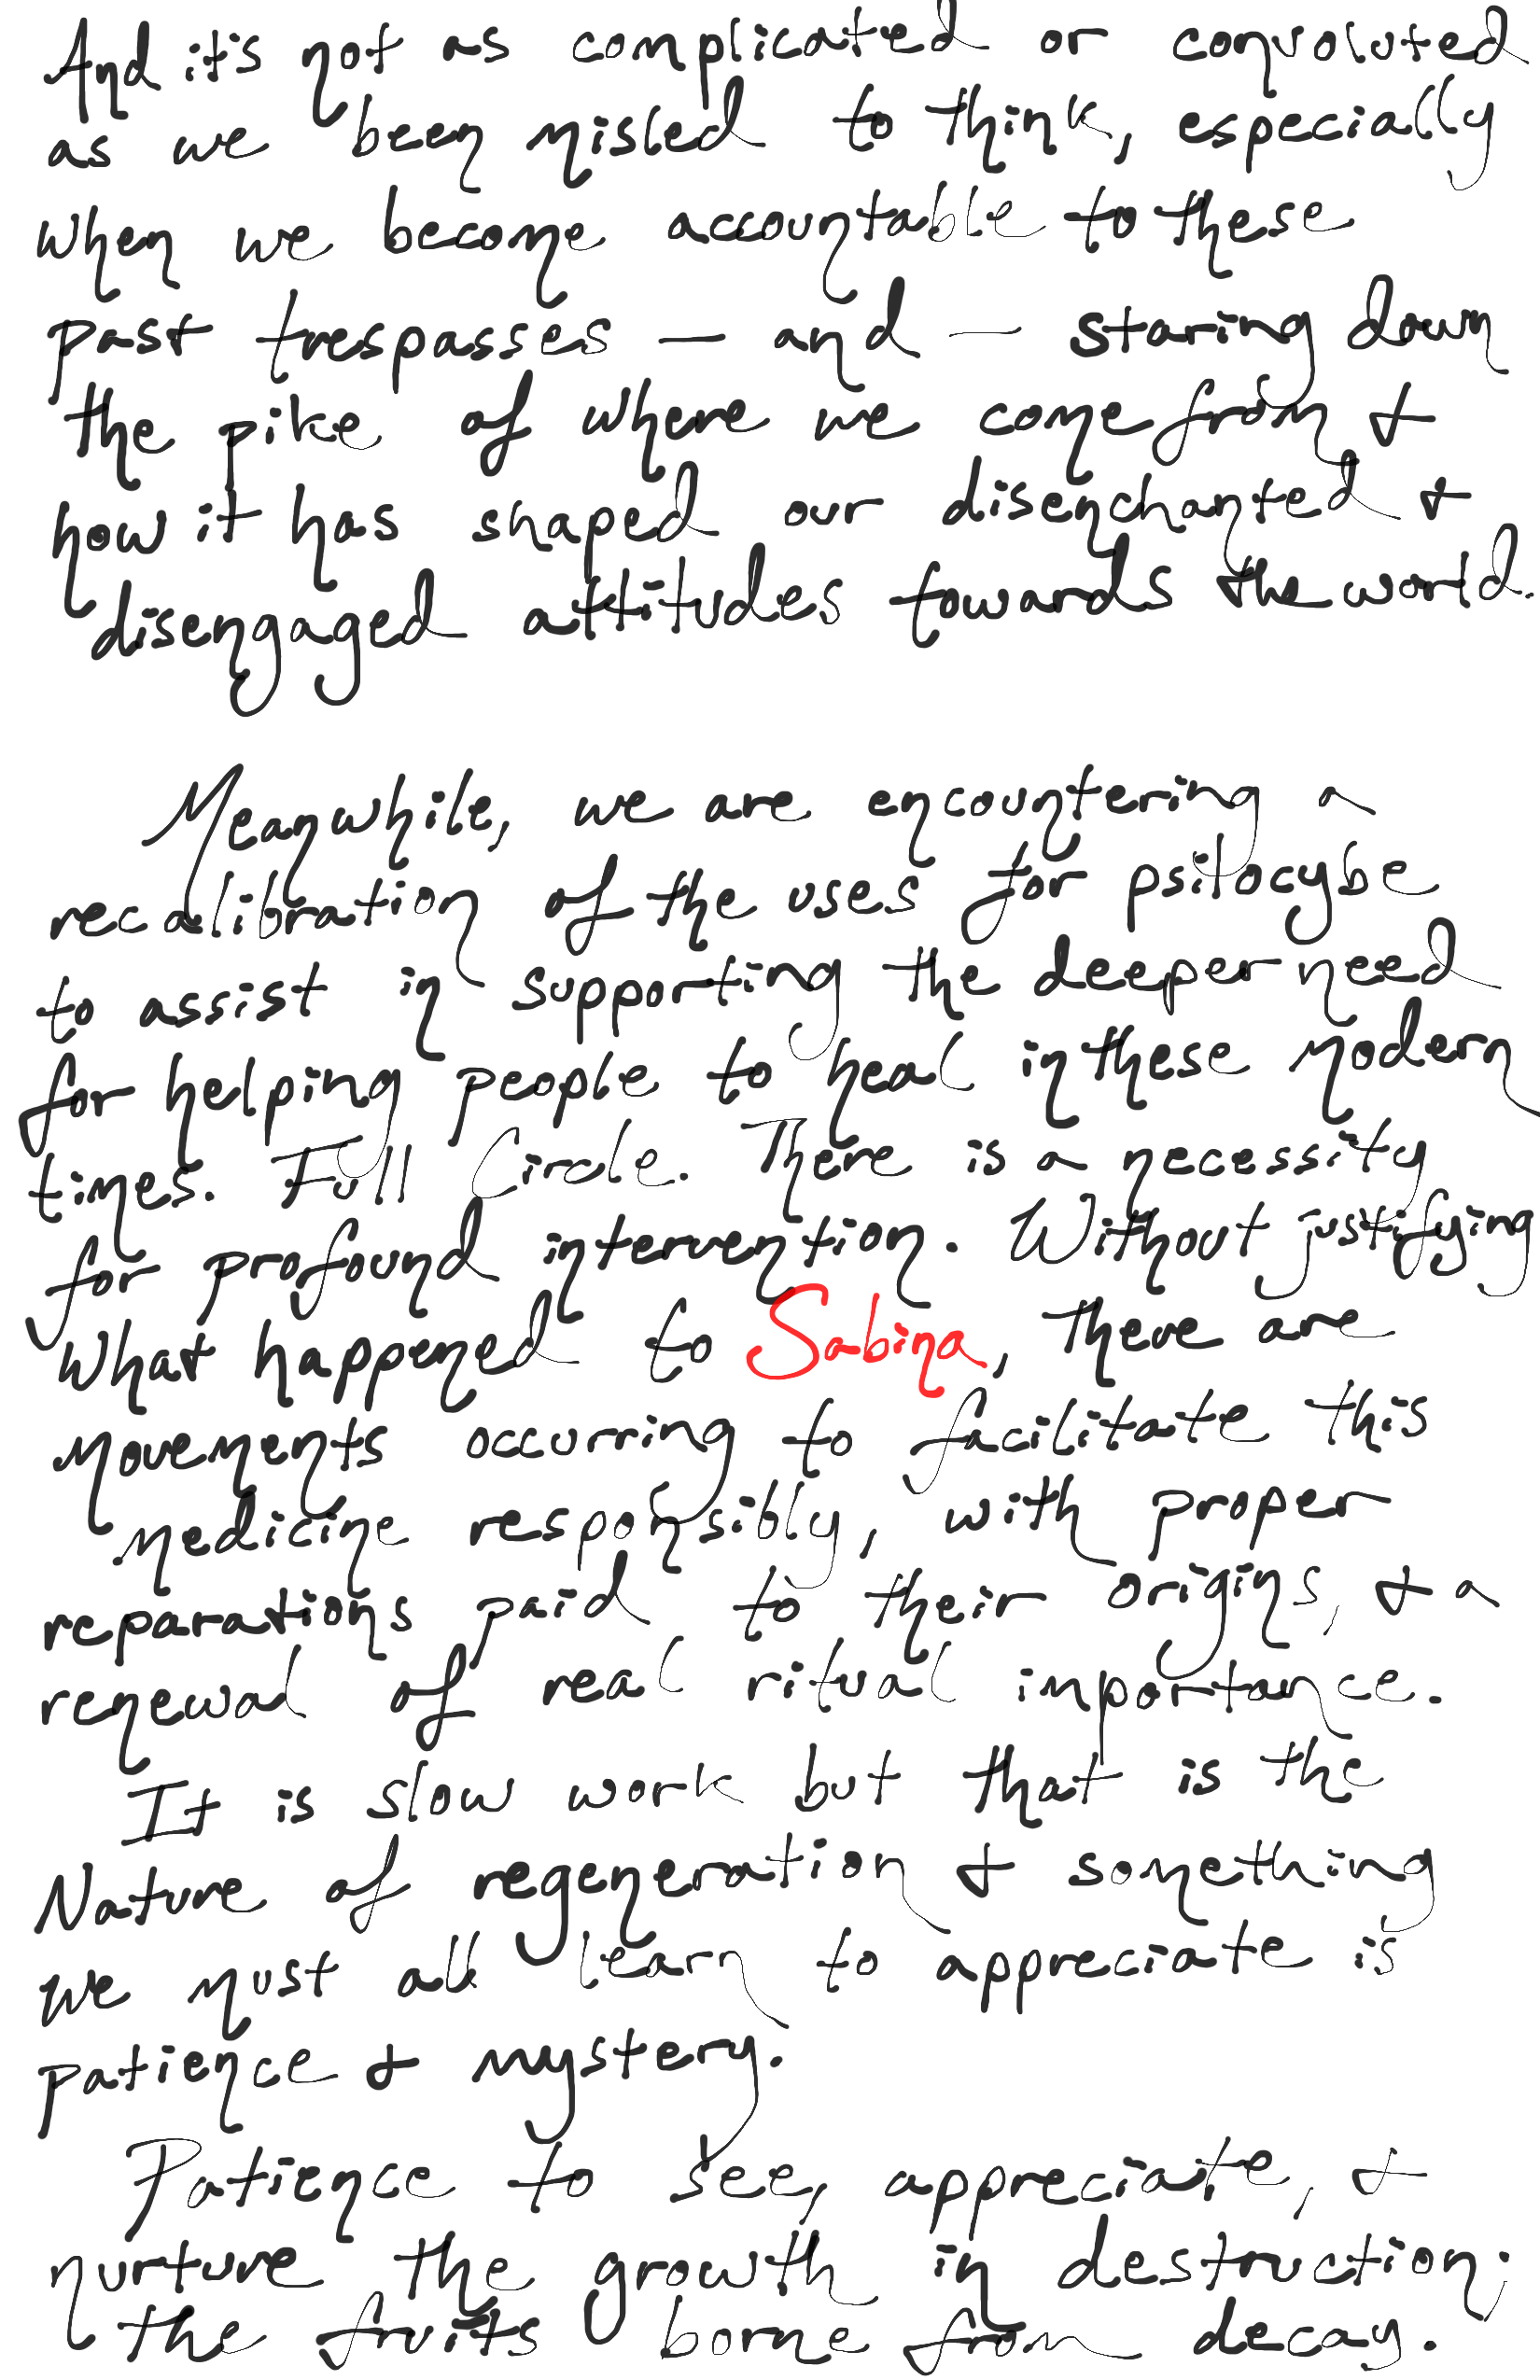 And it's not as complicated or convoluted
as we been misled to think, especially
when we become accountable to these
past trespasses — and — staring down
the pike of where we come from &
how it has shaped our disenchanted &
disengaged attitudes towards the world.
Meanwhile, we are encountering a
recalibration of the uses for psilocybe
to assist in supporting the deeper need
for helping people to heal in these modern
times. Full Circle. There is a necessity
for profound intervention. Without justifying
what happened to Sabina, there are
movements occurring to facilitate this
medicine responsibly, with proper
reparations paid to their origins, & a
renewal of real ritual importance.
It is slow work but that is the
Nature of regeneration & something
we must all learn to appreciate is
patience & mystery.
Patience to see, appreciate, &
nurture the growth in destruction;
the fruits borne from decay.